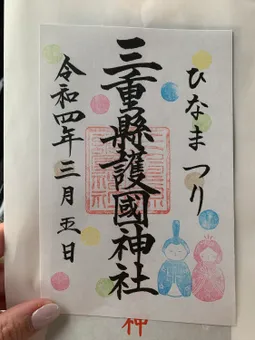 ひなまつり
三重縣護國神社
令和四年三月五日
神